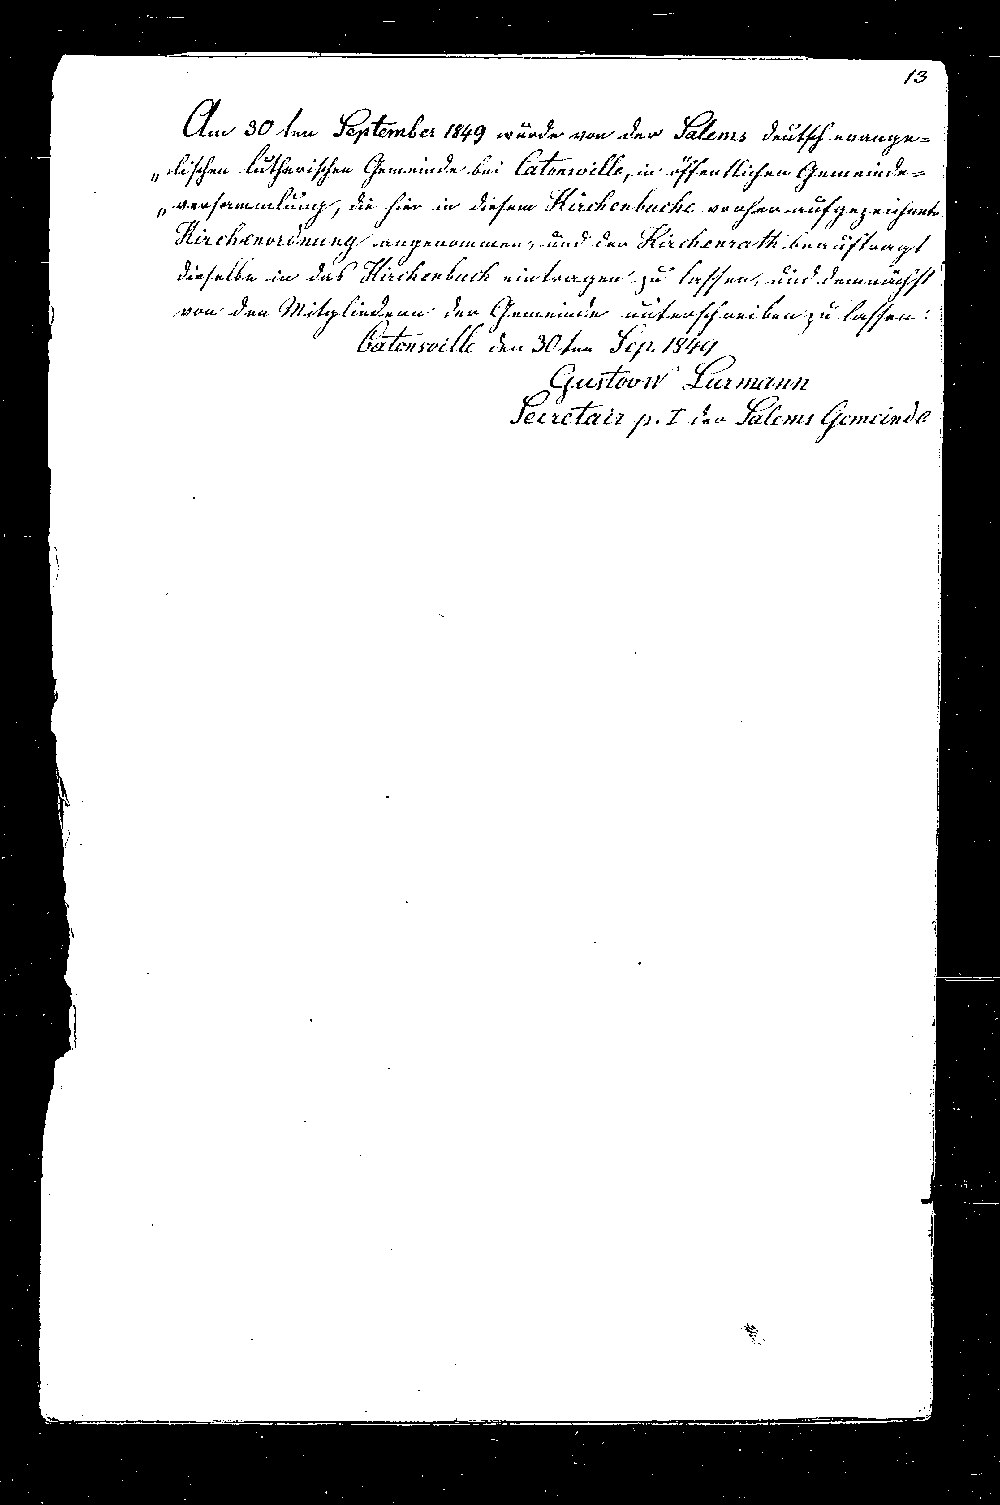 13
Am 30ten September 1849 wurde von der Salems deutsch evange=
„lischen lutherischen Gemeinde bei Catonsville, in öffentlichen Gemeinde=
„versammlung, die hier in diesem Kirchenbuche vorher aufgezeichnete
Kirchenordnung angenommen, und der Kirchenrath beauftragt
dieselbe in das Kirchenbuch eintragen zu lassen, und demnächst
von den Mitgliedern der Gemeinde unterschreiben zu lassen.
Catonsville den 30ten Sep. 1849
Gustoov Lurmann
Secretair p. T der Salems Gemeinde